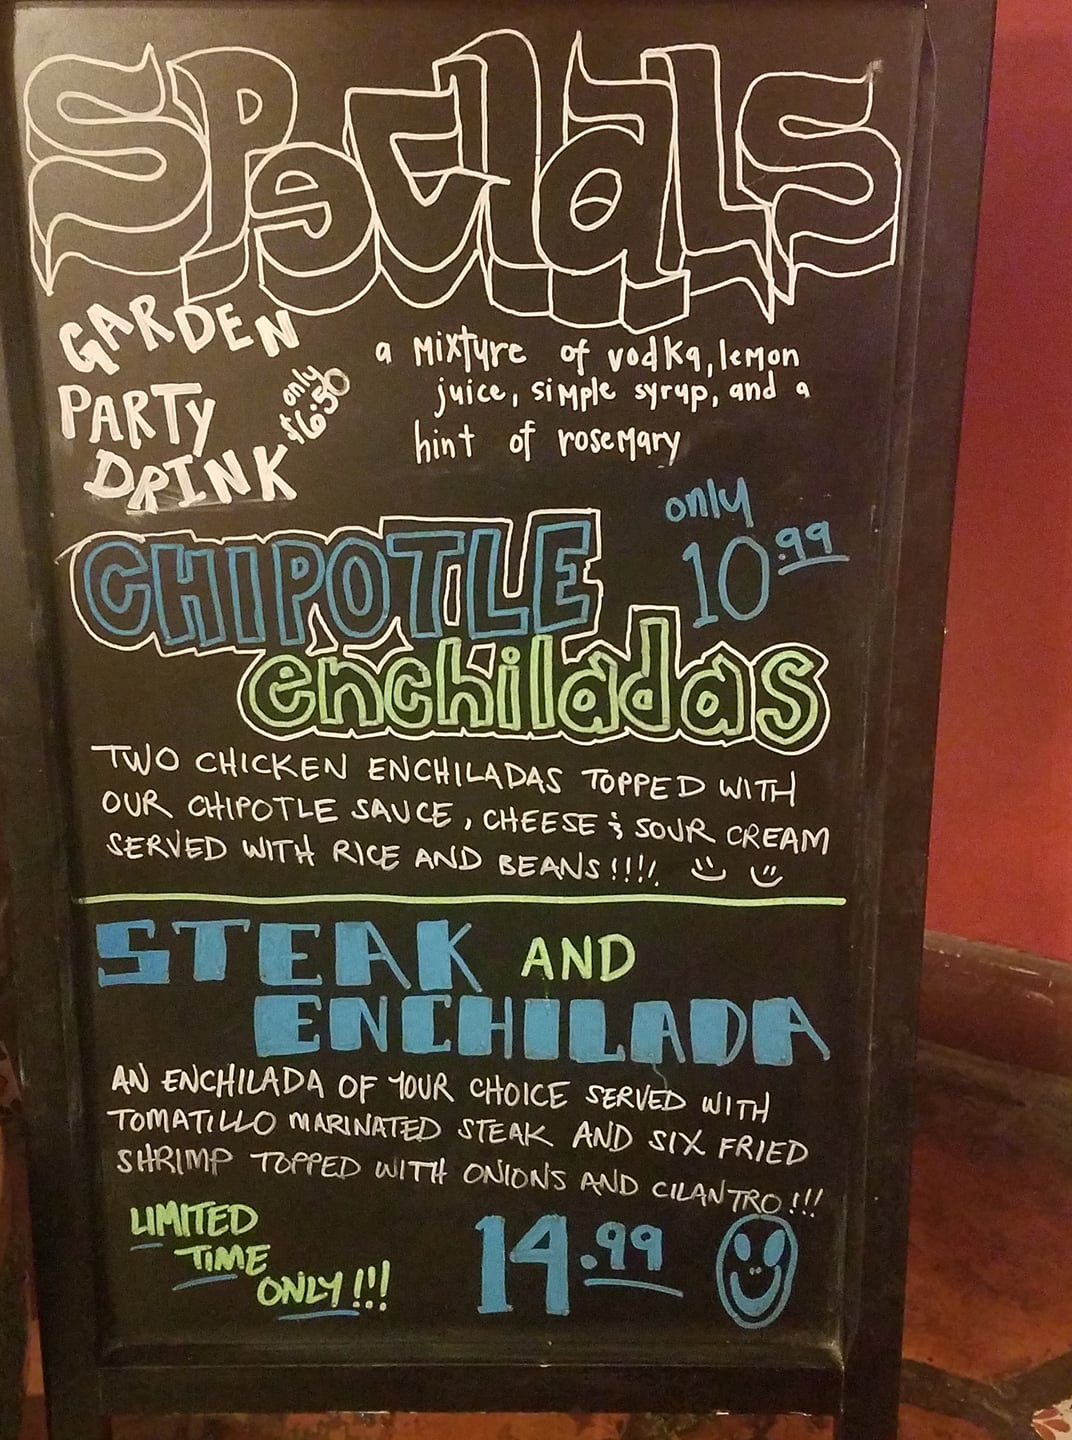 SPeCIaLS
GARDEN
PARTY
DRINK
only
$6.50
a Mixture of vodka, lemon
juice, simple syrup, and a
hint of rosemary
CHIPOTLE
enchiladas
only
10.99
TWO CHICKEN ENCHILADAS TOPPED WITH
OUR CHIPOTLE SAUCE, CHEESE & SOUR CREAM
SERVED WITH RICE AND BEANS!!!!
STEAK AND
ENCHILADA
AN ENCHILADA OF YOUR CHOICE SERVED WITH
TOMATILLO MARINATED STEAK AND SIX FRIED
SHRIMP TOPPED WITH ONIONS AND CILANTRO!!!
LIMITED
TIME
ONLY!!!
14.99